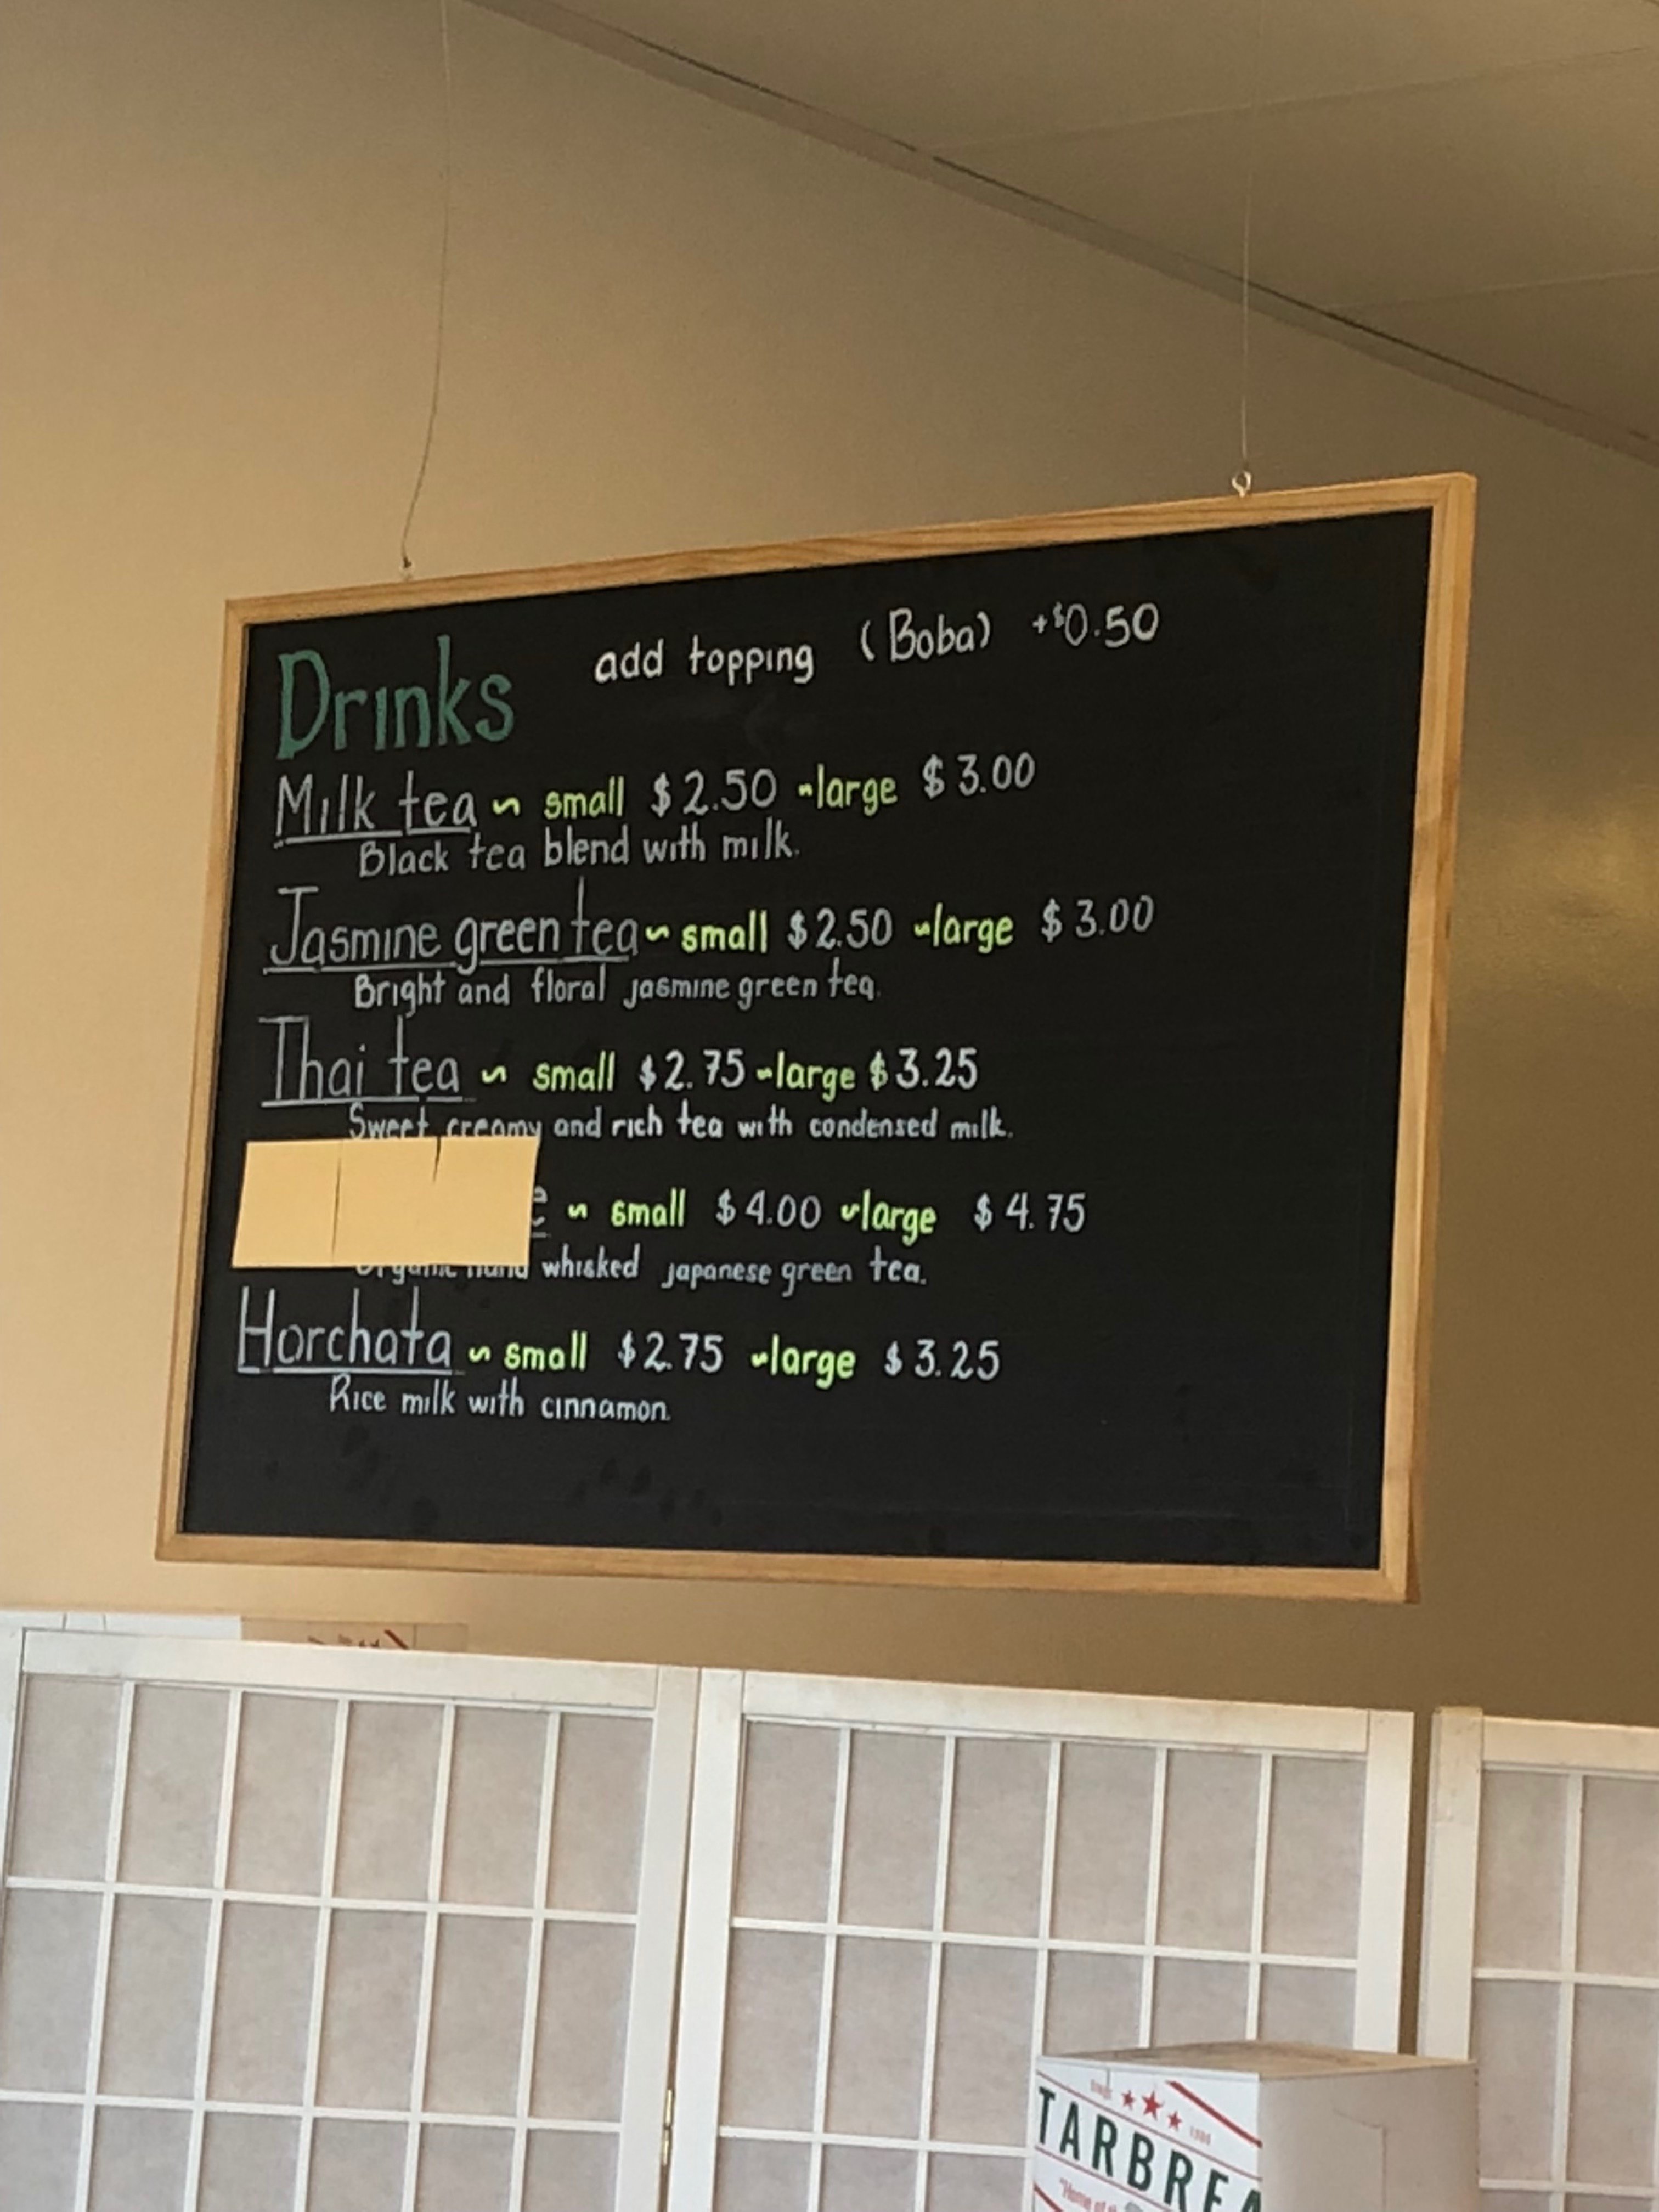 Drinks add topping (Boba) +$0.50
Milk tea ~ small $2.50 ~large $3.00
Black tea blend with milk.
Jasmine green tea ~ small $2.50 ~large $3.00
Bright and floral jasmine green tea.
Thai tea ~ small $2.75 ~large $3.25
Sweet creamy and rich tea with condensed milk.
~ small $4.00 ~large $4.75
Organic hand whisked japanese green tea.
Horchata ~ small $2.75 ~large $3.25
Rice milk with cinnamon.
TARBREA
"Home of th